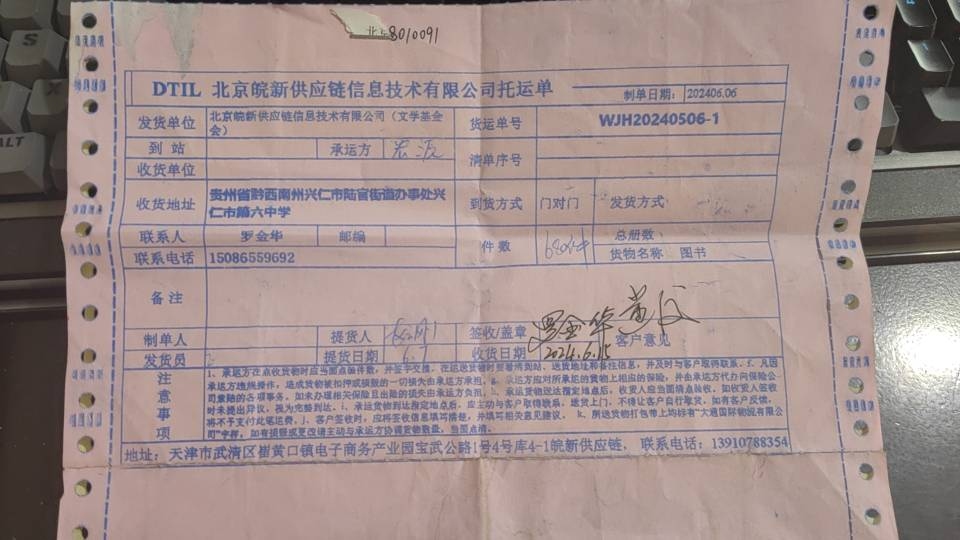 8010091
DTIL 北京皖新供应链信息技术有限公司托运单
制单日期: 202406.06
发货单位 北京皖新供应链信息技术有限公司（文学基金会） 货运单号 WJH20240506-1
到 站 承运方 宏波 清单序号
收货单位
收货地址 贵州省黔西南州兴仁市陆官街道办事处兴仁市第六中学 到货方式 门对门 发货方式
联系人 罗金华 邮编 件 数 总册数
联系电话 15086559692 货物名称 图书
备 注
制单人 提货人 签收/盖章 罗金华 客户意见
发货员 提货日期 6.7 收货日期 2024.6.15
注意事项
1、承运方在点收货物时应当面点验件数，并签字交接。在运送货物时要看清到站、送货地址和备注信息，并及时与客户取得联系。f、凡因
承运方违规操作，造成货物被扣押或损毁的一切损失由承运方承担。g、承运方应对所承运的货物上相应的保险，并由承运方代办向保险公
司索赔的各项事务，如未办理相关保险且出险的损失由承运方负担。h、承运货物运达指定地点后，收货人应当面清点验收，如收货人签收
时未提出异议，视为完整到达。i、承运货物到达指定地点后，应主动与客户取得联系，送货上门，不得让客户自行取货，如有客户反馈，
将不予支付此笔运费。j、客户签收时，应将签收信息填写清楚，并填写相关意见建议。k、所送货物打包带上均标有“大通国际物流有限公
司”字样，如有损毁或更改请主动与承运方协调货物数量，当面点清。
地址: 天津市武清区崔黄口镇电子商务产业园宝武公路1号4号库4-1皖新供应链, 联系电话: 13910788354